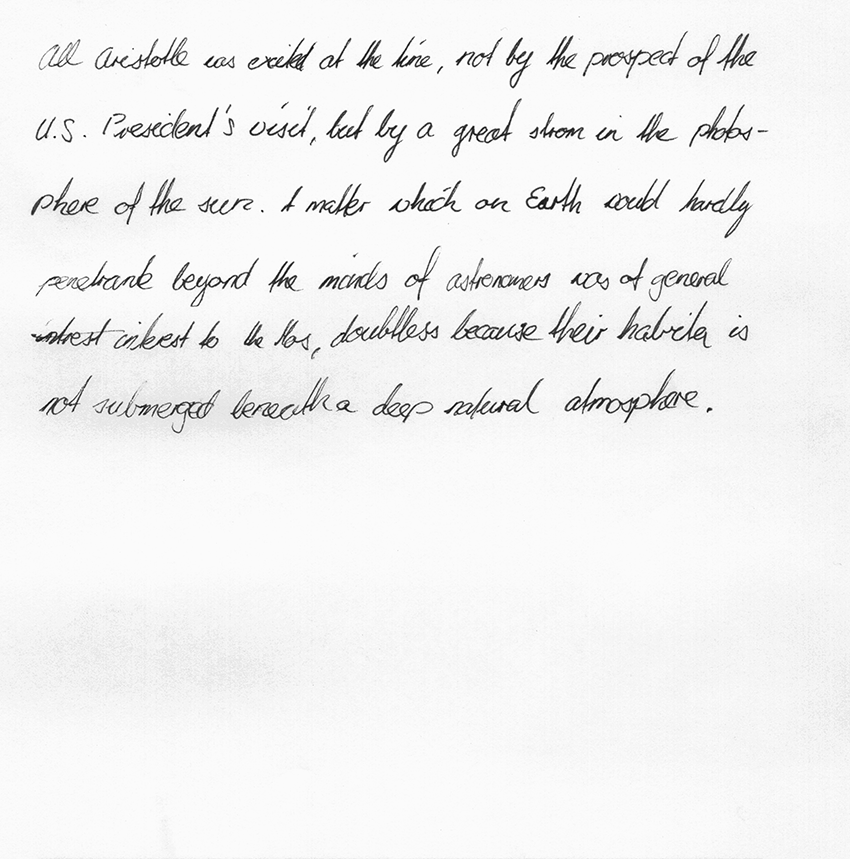 All Aristotle was excited at the time, not by the prospect of the
U.S. President's visit, but by a great strom in the photos-
phere of the sun. A matter which on Earth would hardly
penetrante beyond the minds of astronomers was of general
intrest interest to the Mos, doubtless because their habriter is
not submerged beneath a deep natural atmosphere.